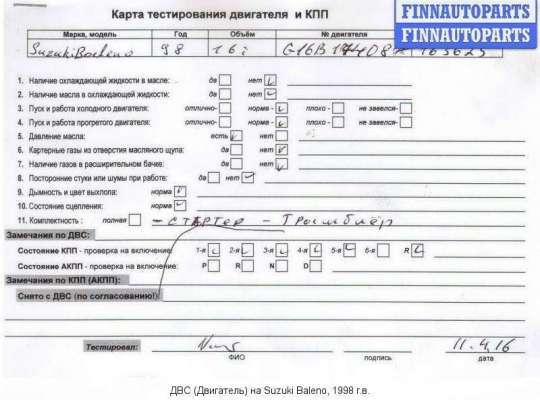 Карта тестирования двигателя и КПП
FINNAUTOPARTS
FINNAUTOPARTS
Марка, модель Год Объём № двигателя
Suzuki Baleno 98 1.6i G16B 165625
1. Наличие охлаждающей жидкости в масле: да нет
2. Наличие масла в охлаждающей жидкости: да нет
3. Пуск и работа холодного двигателя: отлично- норма - плохо - не завелся-
4. Пуск и работа прогретого двигателя: отлично- норма - плохо - не завелся-
5. Давление масла: есть нет
6. Картерные газы из отверстия масляного щупа: да нет
7. Наличие газов в расширительном бачке: да нет
8. Посторонние стуки или шумы при работе: да нет
9. Дымность и цвет выхлопа: норма
10. Состояние сцепления: норма
11. Комплектность : полная - стартер - Трамблёр
Замечания по ДВС:
Состояние КПП - проверка на включение: 1-я 2-я 3-я 4-я 5-я 6-я R
Состояние АКПП - проверка на включение: P R N D
Замечания по КПП (АКПП):
Снято с ДВС (по согласованию!):
Тестировал: 11.4.16
ФИО подпись дата
ДВС (Двигатель) на Suzuki Baleno, 1998 г.в.